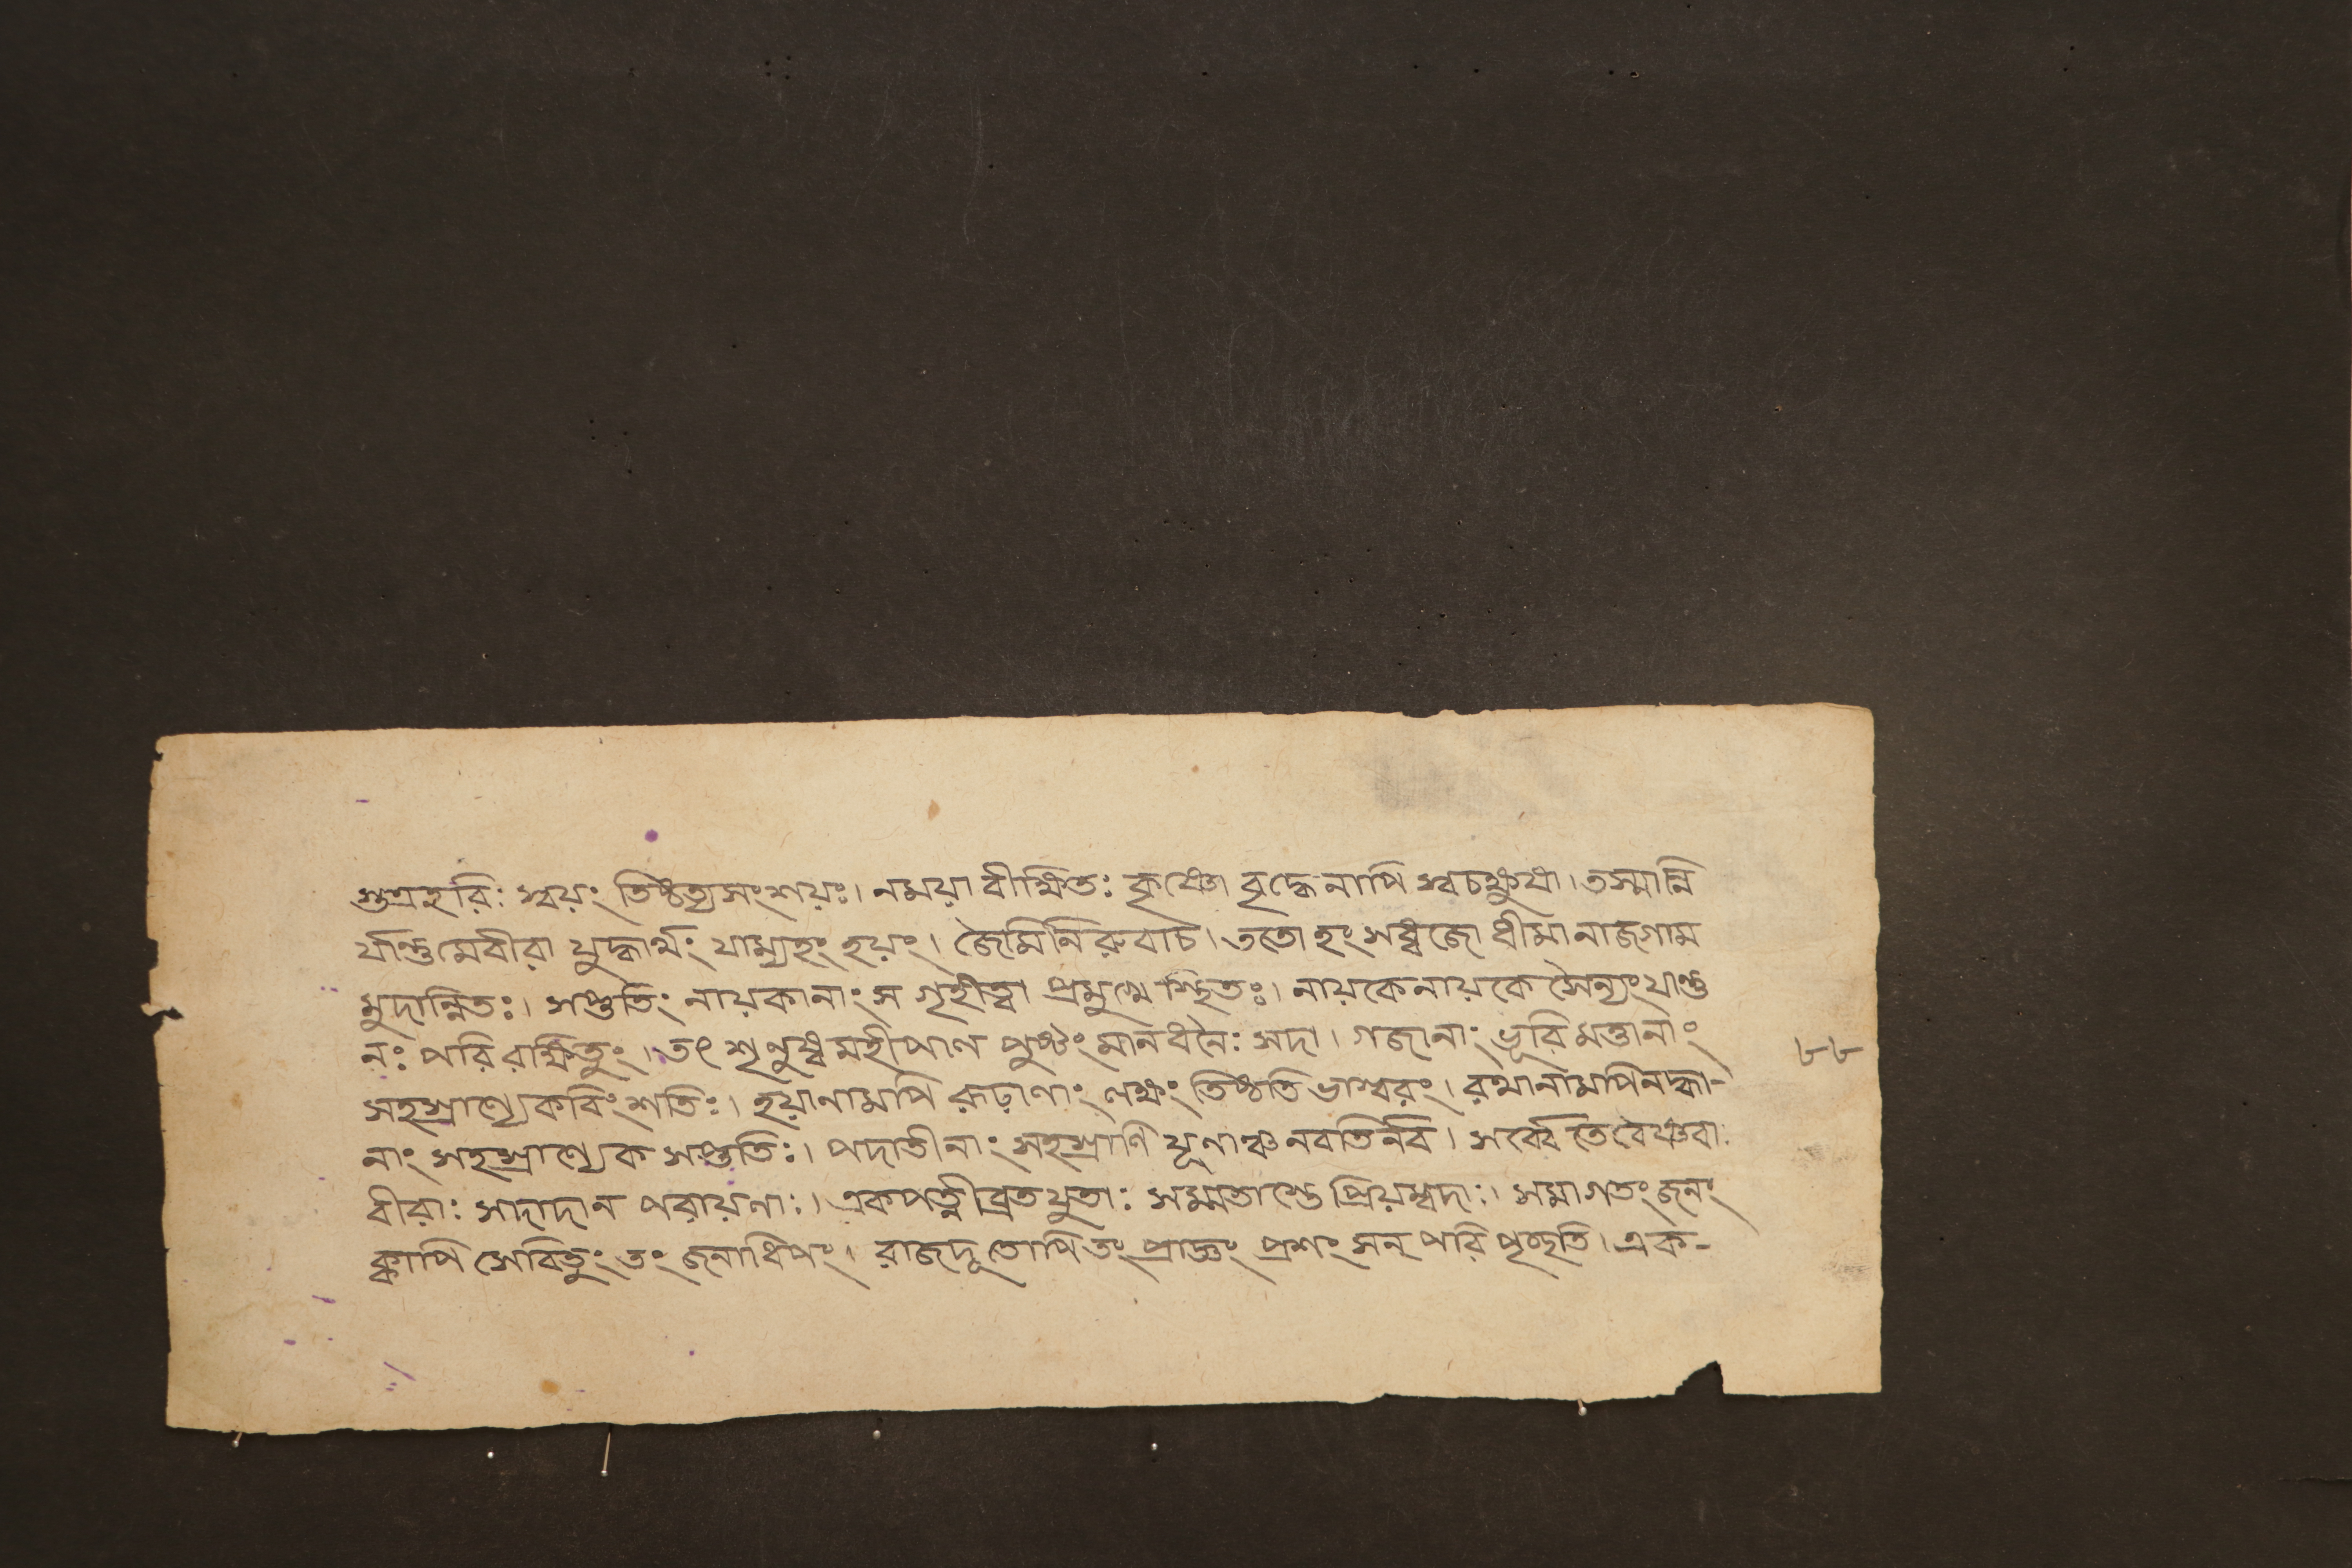 শুত্রহরিঃ স্বয়ং তিষ্ঠত্যসংশয়ঃ। নময়া বীক্ষিতঃ কৃষ্ণো বৃদ্ধেনাপি স্বচক্ষুষা। তস্মান্নি
র্যান্তু মেবীরা যুদ্ধার্থং যাম্যহং হয়ং। জৈমিনিরুবাচ। ততো হংসধ্বজো ধীমানাজগাম
মুদান্বিতঃ। সপ্ততিং নায়কানাং স গৃহীত্বা প্রমুখে স্থিতঃ। নায়কেনায়কে সৈন্যং যাণ্ডু
নঃ পরিরাক্ষিতুং। তৎ শৃণুষ্ব মহীপাল পুষ্টং মানধনৈঃ সদা। গজানাং ভূরি মত্তানাং
সহস্রাণ্যেকবিংশতিঃ। হয়ানামপি রূঢ়াণাং লক্ষং তিষ্ঠতি ভাস্বরং। রথানামপিনদ্ধা-
নাং সহস্রাণ্যেক সপ্ততিঃ। পদাতীনাং সহস্রাণি যূনাঞ্চ নবতির্নব। সর্ব্বে তে বৈষ্ণবাঃ
বীরাঃ সদাদান পরায়ণাঃ। একপত্নীব্রতযুতাঃ সম্মতাস্তে প্রিয়ম্বদাঃ। সমাগতং জনং
ক্বাপি সেবিতুং তং জনাধিপং। রাজদূতোপি তং প্রাপ্তং প্রশংসন্ পরিপৃচ্ছতি। এক-
৮৮